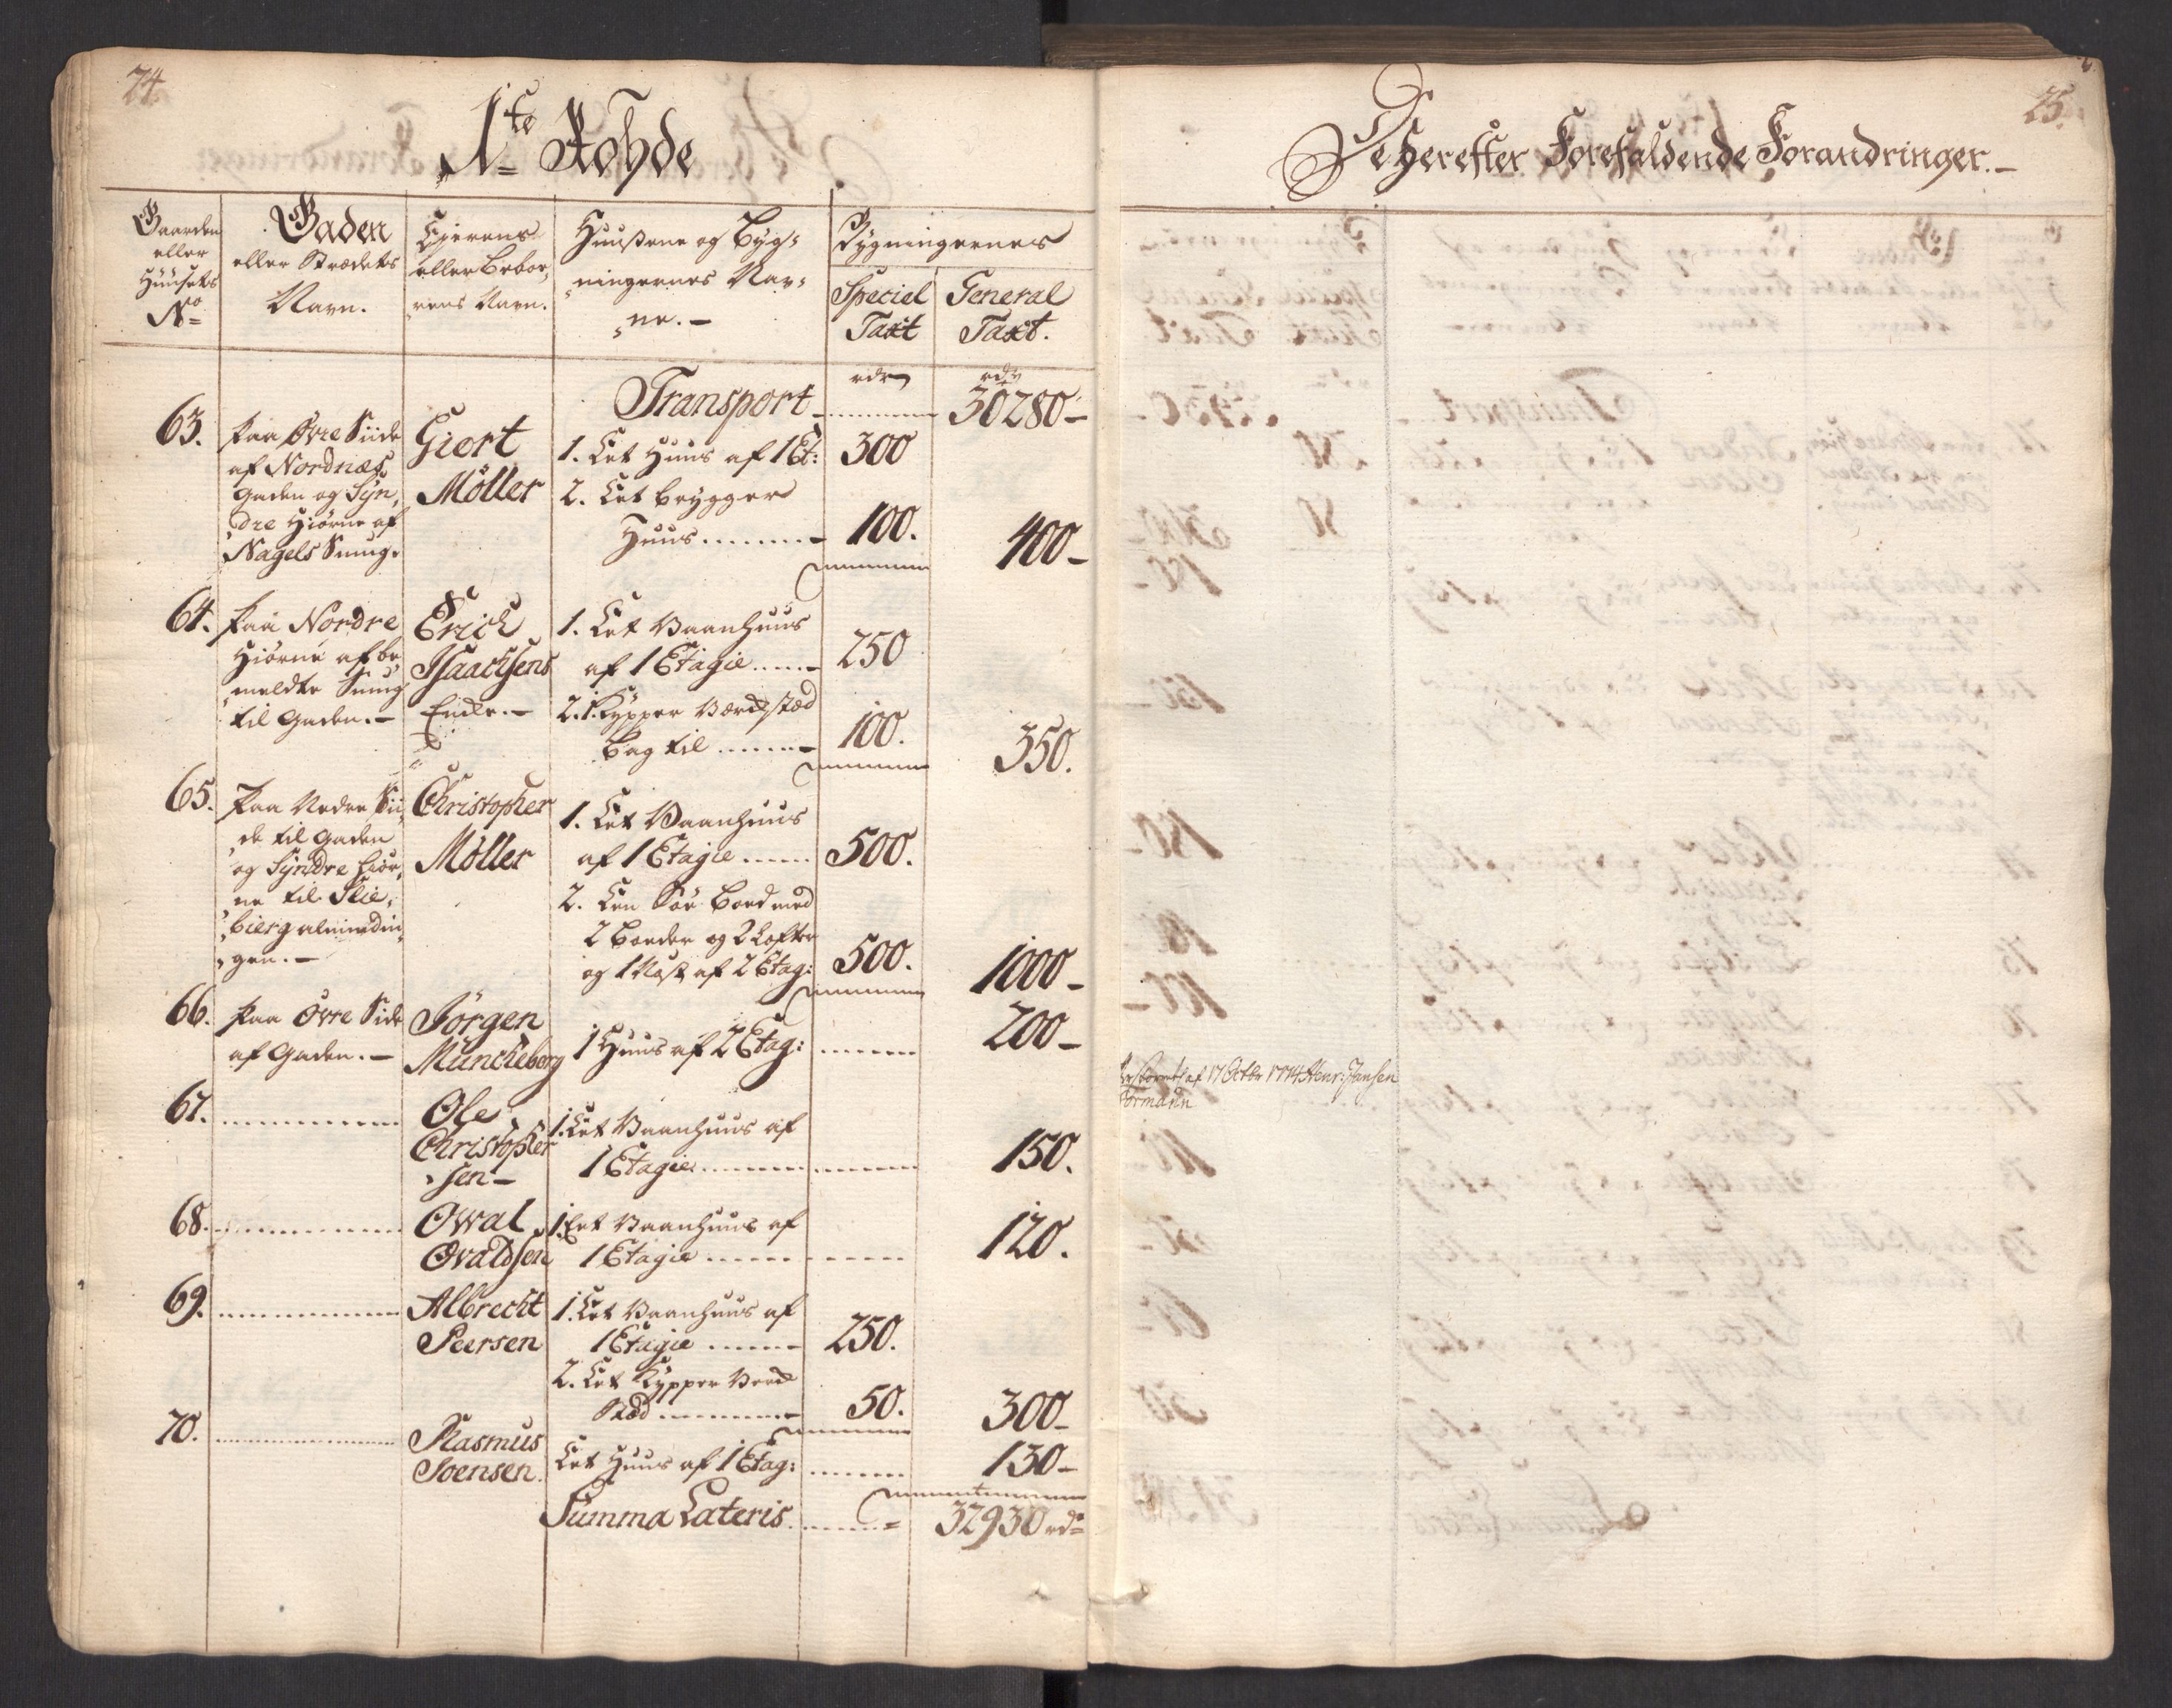 74.
1te Rohde
Gaarden
eller
Huusets
No
Gaden
eller Strædets
Navn.
Ejerens
eller Beboe,
rens Navn.
Huusene og Byg,
ningernes Nav,
ne.
Bygningernes
Speciel
Taxt
General
Taxt.
Transport
rdr
rdr
30280
63.
Paa Øvre Siide
af Nordnæs
Gaden og Syn,
dre Hiørne af
Nagels Smug.
Giert
Möller
1. Eet Huus af 1 Et: 300
2. Eet Brygger
Huus 100. 400
64.
Paa Nordre
Hiørne af be,
meldte Smug
til Gaden.
Erich
Isaachsens
Encke.
1. Eet Vaanhuus
af 1 Etagie 250
2. 1 Kypper Værchstæd
bag til 100. 350.
65.
Paa Nedre Sii,
de til Gaden
og Syndre Hiør,
ne til Slie,
bierg alminding,
gen.
Christopher
Möller
1. Eet Vaanhuus
af 1 Etagie 500.
2. Een Søe Boed med
2 Boeder og 2 Lofter
og 1 Nøst af 2 Etag: 500. 1000
66.
Paa Øvre Side
af Gaden.
Jörgen
Müncheberg
1 Huus af 2 Etag: 200
67.
Ole
Christopher
sen
1. Eet Vaanhuus af
1 Etagie 150.
68.
Owal
Ovaldsen
1. Eet Vaanhuus af
1 Etagie 120.
69.
Albrecht
Peersen
1. Eet Vaanhuus af
1 Etagie 250.
2. Eet Kypper Værch
Stæd 50. 300
70.
Rasmus
Joensen.
Eet Huus af 1 Etag: 130
Summa Lateris 32930 rdr
25.
De herefter Forefaldende Forandringer.
af 17 Octbr 1774 Henr: Jansen
Formann